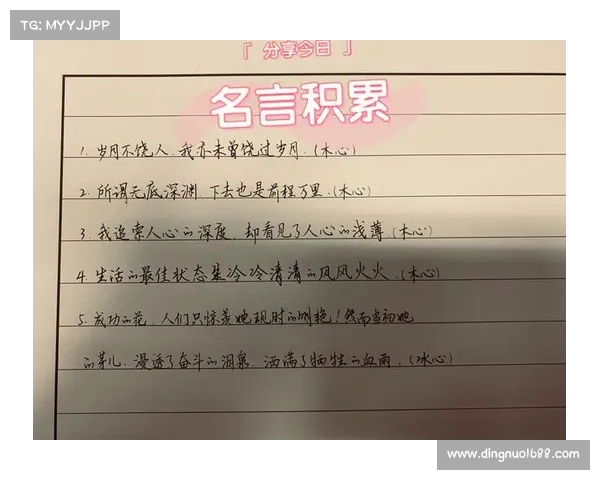 TG: MYYJJPP
「 分享今日 」
名言积累
1. 岁月不饶人,我亦未曾饶过岁月.(木心)
2. 所谓无底深渊,下去也是前程万里.(木心)
3. 我追索人心的深度,却看见了人心的浅薄.(木心)
4. 生活的最佳状态是冷冷清清的风风火火.(木心)
5. 成功的花,人们只惊羡她现时的明艳!然而当初她
的芽儿,浸透了奋斗的泪泉,洒满了牺牲的血雨.(冰心)
www.dingnuo1688.com